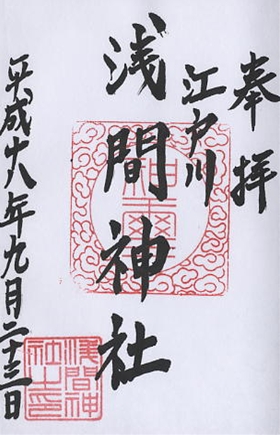 奉拝
江戸川
浅間神社
平成十八年九月二十三日
浅間神社之印